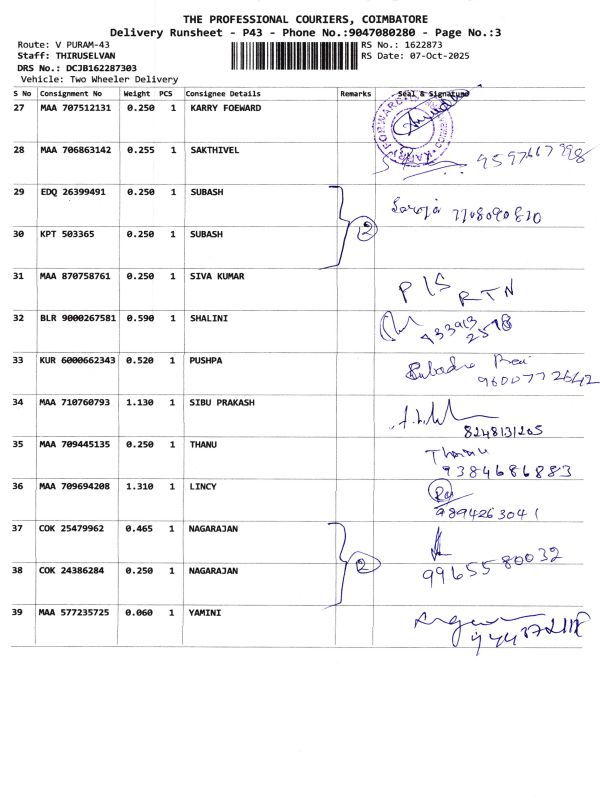 THE PROFESSIONAL COURIERS, COIMBATORE
Delivery Runsheet - P43 - Phone No.:9047080280 - Page No.:3
Route: V PURAM-43
RS No.: 1622873
Staff: THIRUSELVAN
RS Date: 07-Oct-2025
DRS No.: DCJB162287303
Vehicle: Two Wheeler Delivery
S No Consignment No Weight PCS Consignee Details Remarks Seal & Signature
27 MAA 707512131 0.250 1 KARRY FOEWARD
28 MAA 706863142 0.255 1 SAKTHIVEL
29 EDQ 26399491 0.250 1 SUBASH
30 KPT 503365 0.250 1 SUBASH
2
31 MAA 870758761 0.250 1 SIVA KUMAR P/S RTN
32 BLR 9000267581 0.590 1 SHALINI
33 KUR 6000662343 0.520 1 PUSHPA 9600772642
34 MAA 710760793 1.130 1 SIBU PRAKASH 8248131205
35 MAA 709445135 0.250 1 THANU 9384686883
36 MAA 709694208 1.310 1 LINCY 9894263041
37 COK 25479962 0.465 1 NAGARAJAN
38 COK 24386284 0.250 1 NAGARAJAN
2 9965580032
39 MAA 577235725 0.060 1 YAMINI